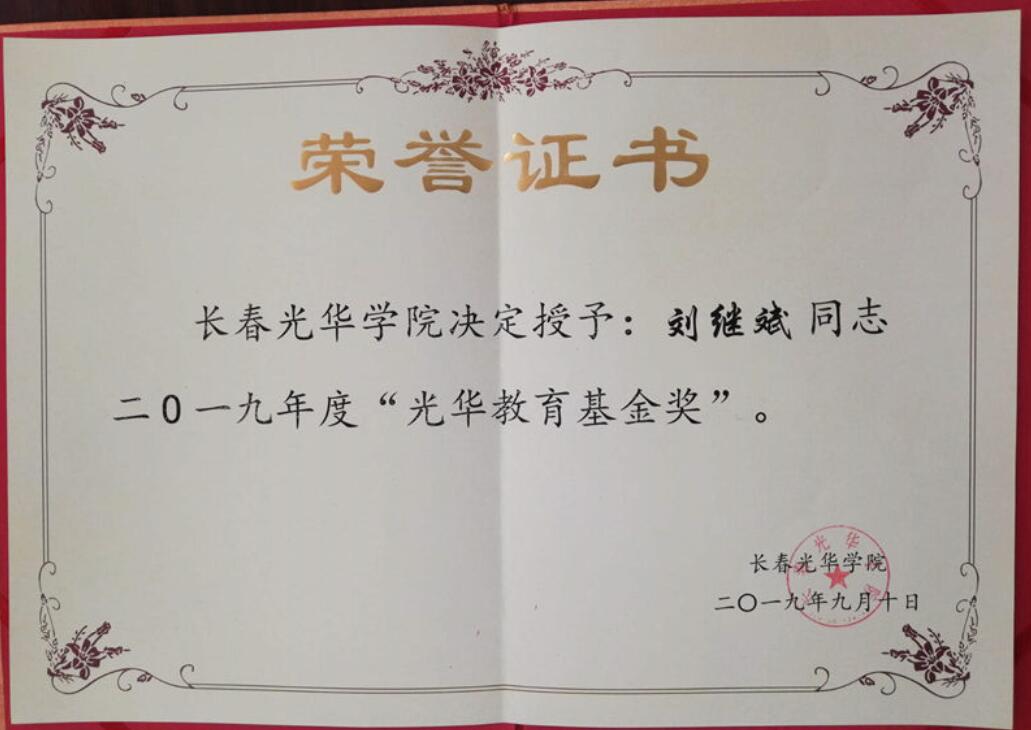 荣誉证书
长春光华学院决定授予：刘继斌同志
二0一九年度“光华教育基金奖”。
长春光华学院
二〇一九年九月十日